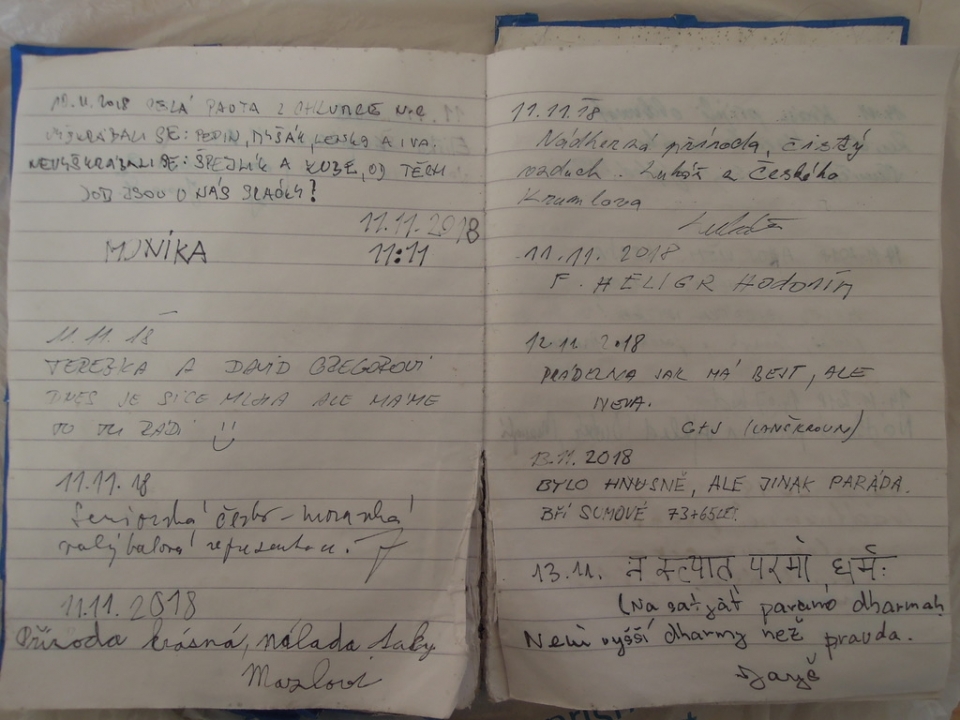 10.11.2018 CELÁ PARTA Z CHLUMCE N.C.
VYŠKRÁBALI SE: PEPIN, MYŠÁK, A IVA.
NEVYŠKRÁBALI SE: ŠPEJLÍK A KUBE, OD TĚCH
JSOU U NÁS SLABÍ!
11.11.2018
MONIKA 11:11
11.11.18
TEREZKA A DAVID GREGOROVI
DNES JE SICE MLHA ALE MÁME
TO TU RÁDI
11.11.18
Seniorská česko-moravská
volejbalová representace.
11.11.2018
Příroda krásná, nálada taky
11.11.18
Nádherná příroda, čistý
vzduch. Lukáš z Českého
Krumlova
11.11.2018
F. HELIGR HODONÍN
12.11.2018
PRÁDELNA JAK MÁ BEJT, ALE
NEVA.
G+J (LANŠKROUN)
13.11.2018
BYLO HNUSNĚ, ALE JINAK PARÁDA.
BŘÍ SUMOVÉ 73+65LET.
13.11. न सत्यात् परमो धर्मः
(Na satját paramó dharmah
Není vyšší dharmy než pravda.